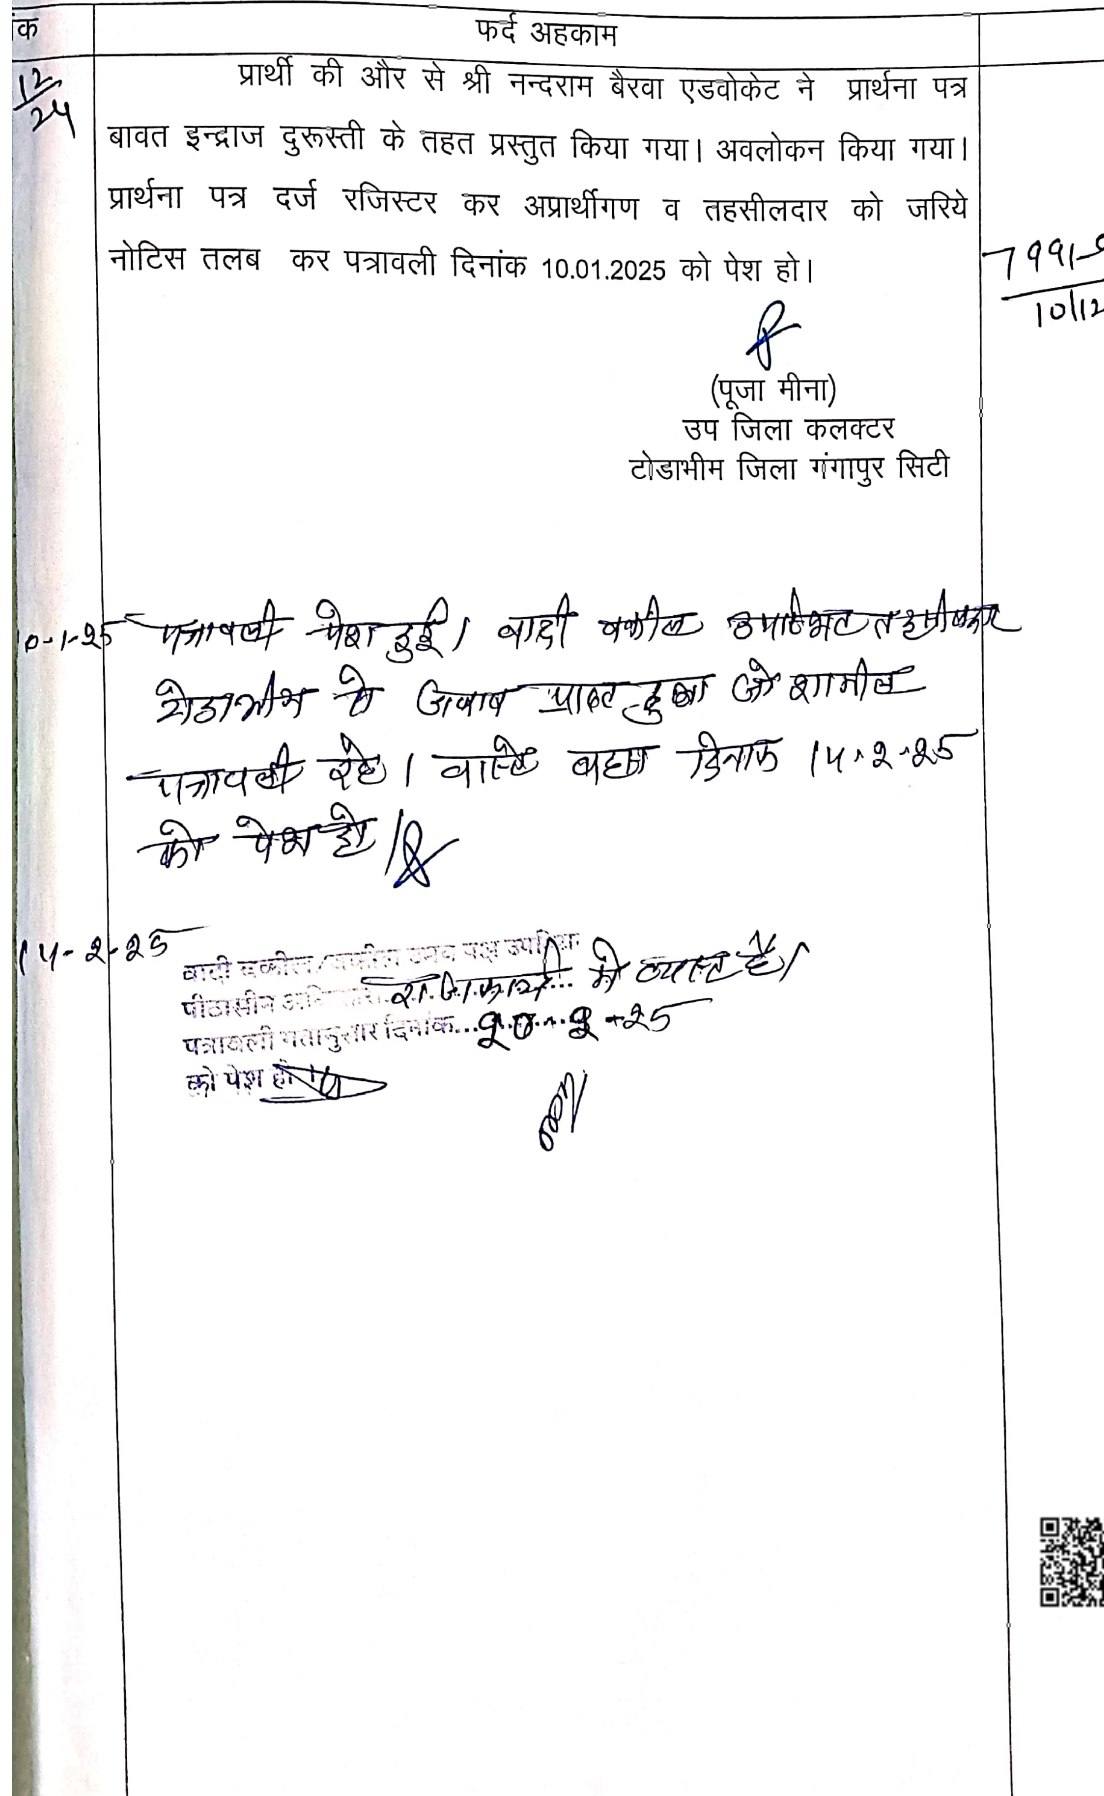 क
फर्द अहकाम
12
24
प्रार्थी की और से श्री नन्दराम बैरवा एडवोकेट ने प्रार्थना पत्र
बावत इन्द्राज दुरूस्ती के तहत प्रस्तुत किया गया। अवलोकन किया गया।
प्रार्थना पत्र दर्ज रजिस्टर कर अप्रार्थीगण व तहसीलदार को जरिये
नोटिस तलब कर पत्रावली दिनांक 10.01.2025 को पेश हो।
10/12
(पूजा मीना)
उप जिला कलक्टर
टोडाभीम जिला गंगापुर सिटी
0-1-25 पत्रावली पेश हुई। वादी वकील उपस्थित तहसीलदार
टोडाभीम से जवाब प्राप्त हुआ जो शामील
पत्रावली रहे। वास्ते बहस दिनांक 14-2-25
को पेश हो।
14-2-25
वादी वकील/वकील उभय पक्ष उपस्थित
पीठासीन राजकार्य में व्यस्त है।
पत्रावली गतानुसार दिनांक
को पेश हो